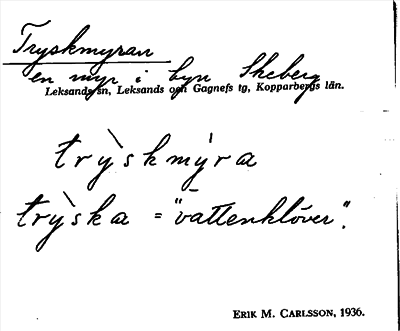 Tryskmyran
en myr i byn Skeberg
Leksands sn, Leksands och Gagnefs tg, Kopparbergs län.
trỳskmýra
trỳska = "vattenklöver".
ERIK M. CARLSSON, 1936.